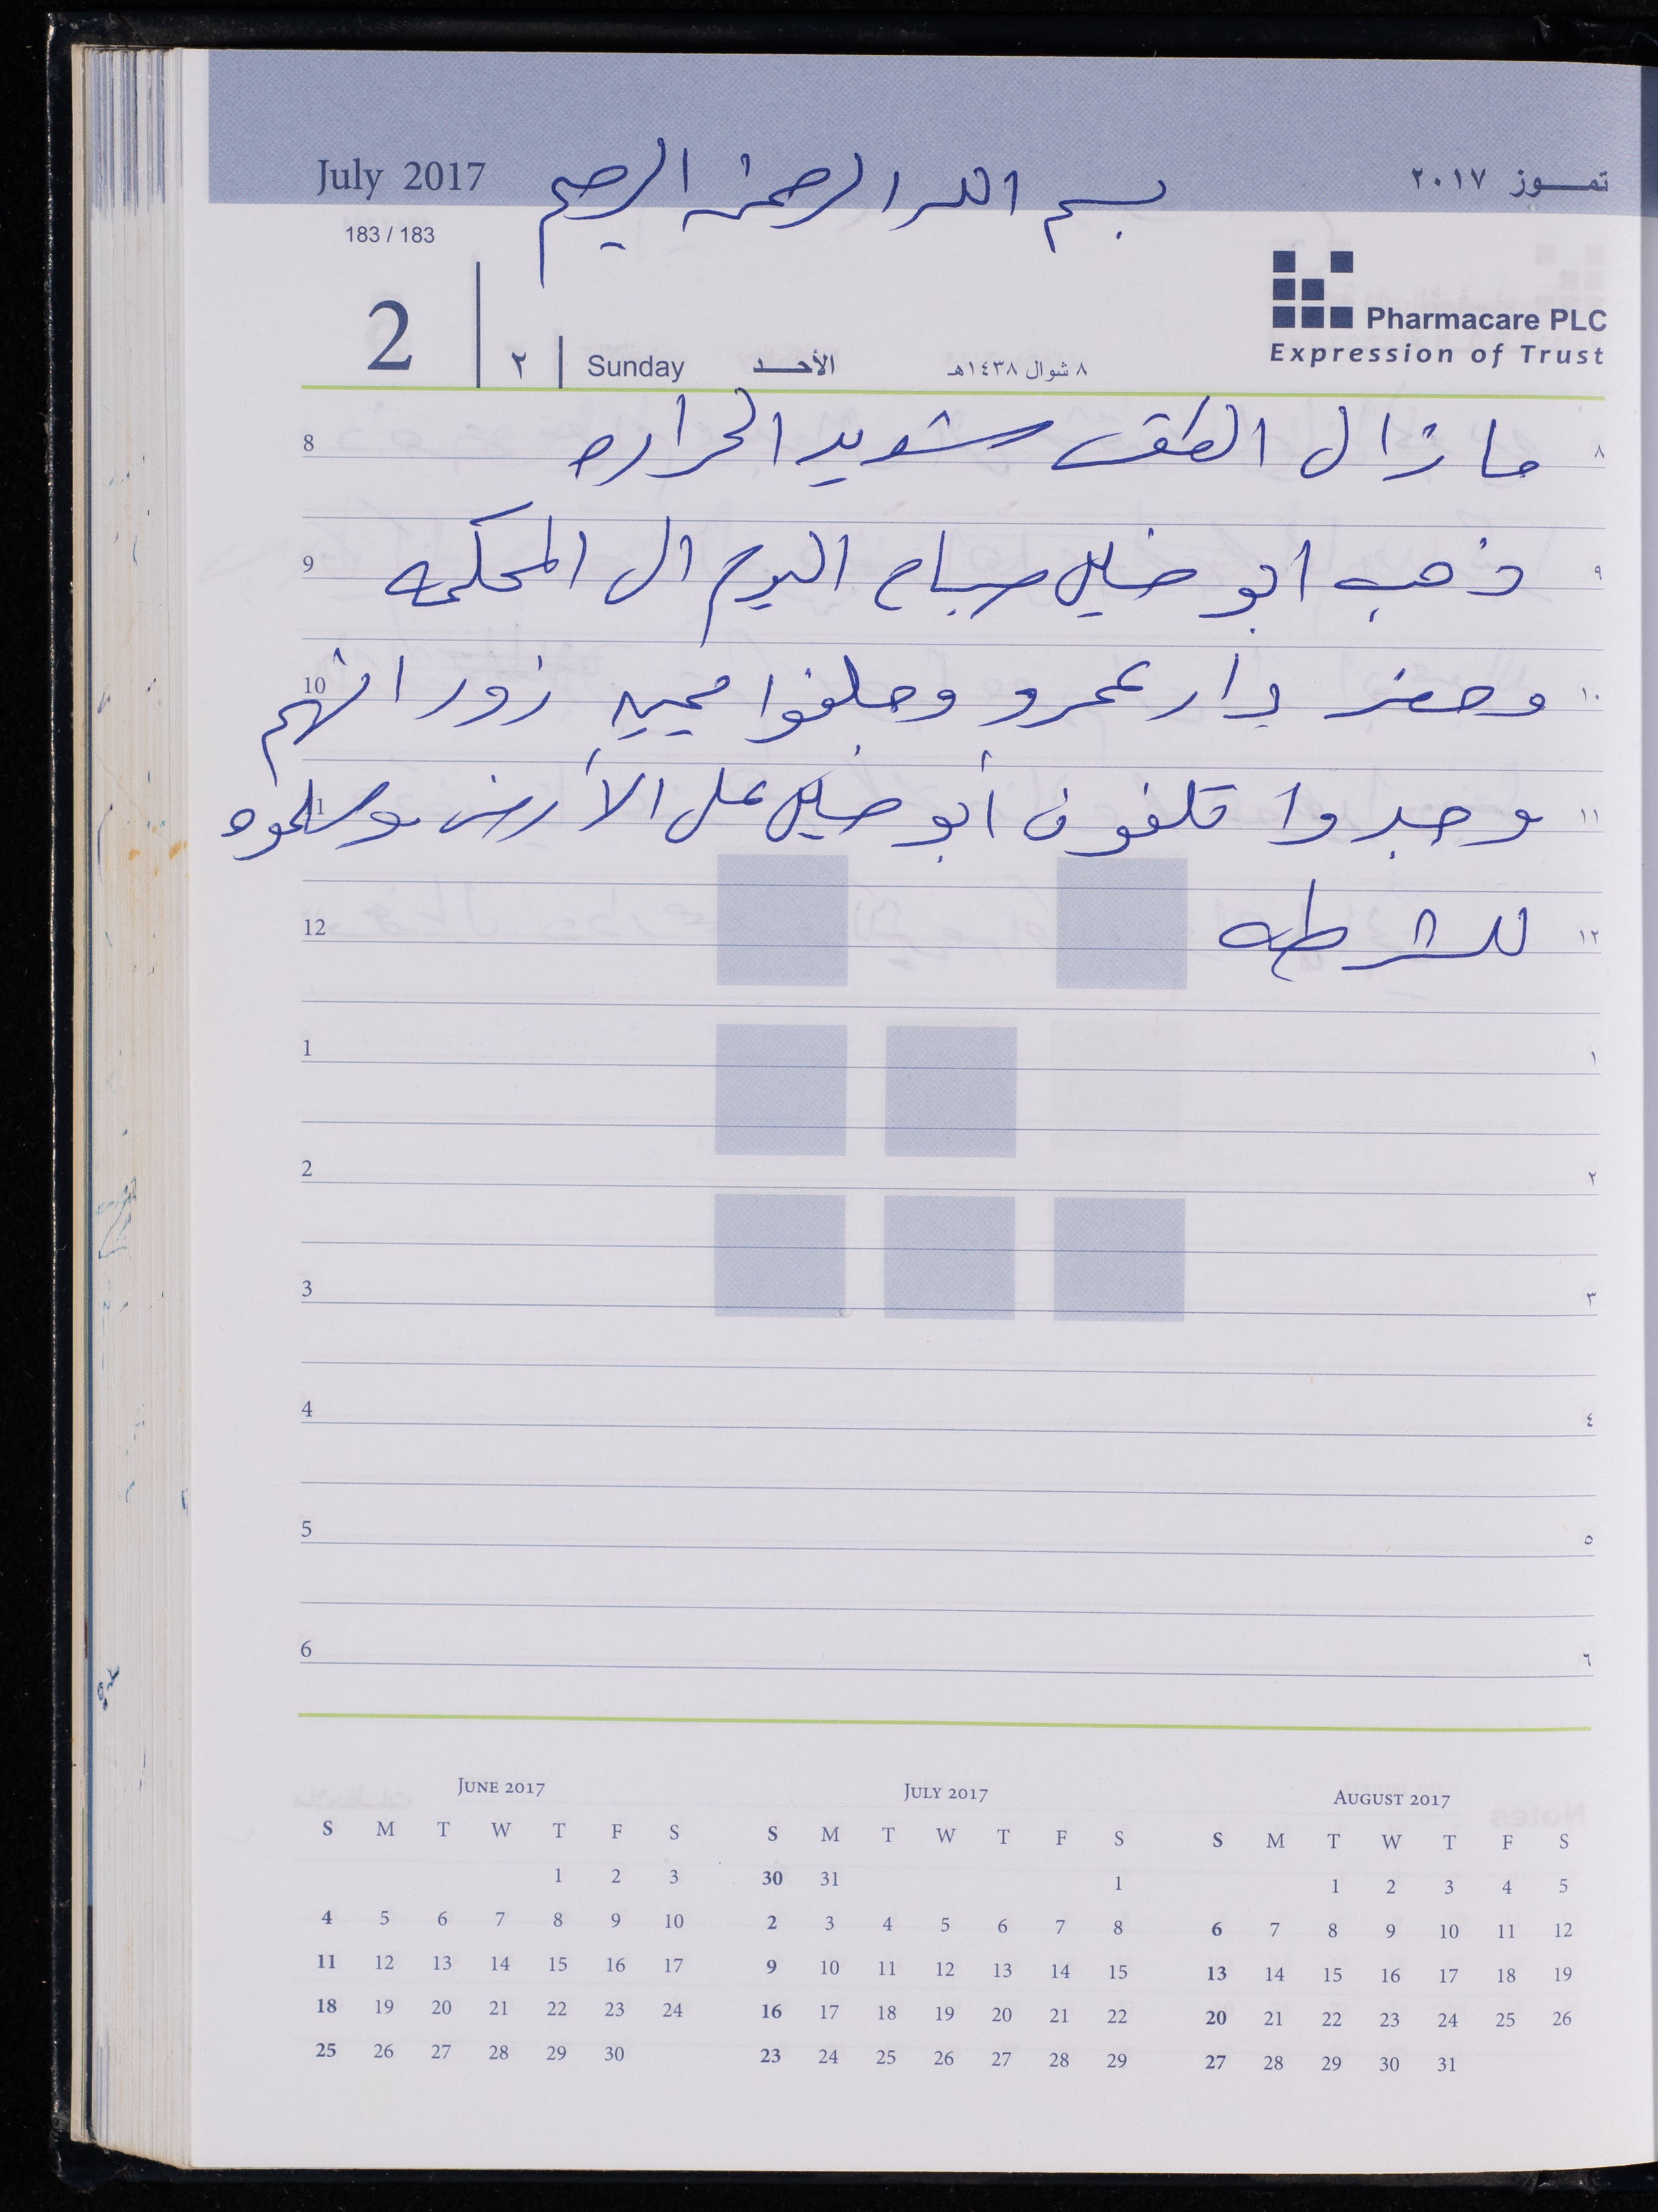 July 2017
بسم الله الرحمن الرحيم
تمــوز ٢٠١٧
183 / 183
2 | ٢ | Sunday الأحــد ٨ شوال ١٤٣٨هـ
Pharmacare PLC
Expression of Trust
8 ما زال الطقس شديد الحراره ٨
9 ذهب ابو خليل صباح اليوم الى المحكمه ٩
10 وحضر دار عمرو وحلفوا يمين زور انهم ١٠
11 وجدوا تلفون أبو خليل على الأرض وسلموه ١١
12 للشرطه ١٢
1 ١
2 ٢
3 ٣
4 ٤
5 ٥
6 ٦
JUNE 2017
S M T W T F S
1 2 3
4 5 6 7 8 9 10
11 12 13 14 15 16 17
18 19 20 21 22 23 24
25 26 27 28 29 30
JULY 2017
S M T W T F S
30 31 1
2 3 4 5 6 7 8
9 10 11 12 13 14 15
16 17 18 19 20 21 22
23 24 25 26 27 28 29
AUGUST 2017
S M T W T F S
1 2 3 4 5
6 7 8 9 10 11 12
13 14 15 16 17 18 19
20 21 22 23 24 25 26
27 28 29 30 31